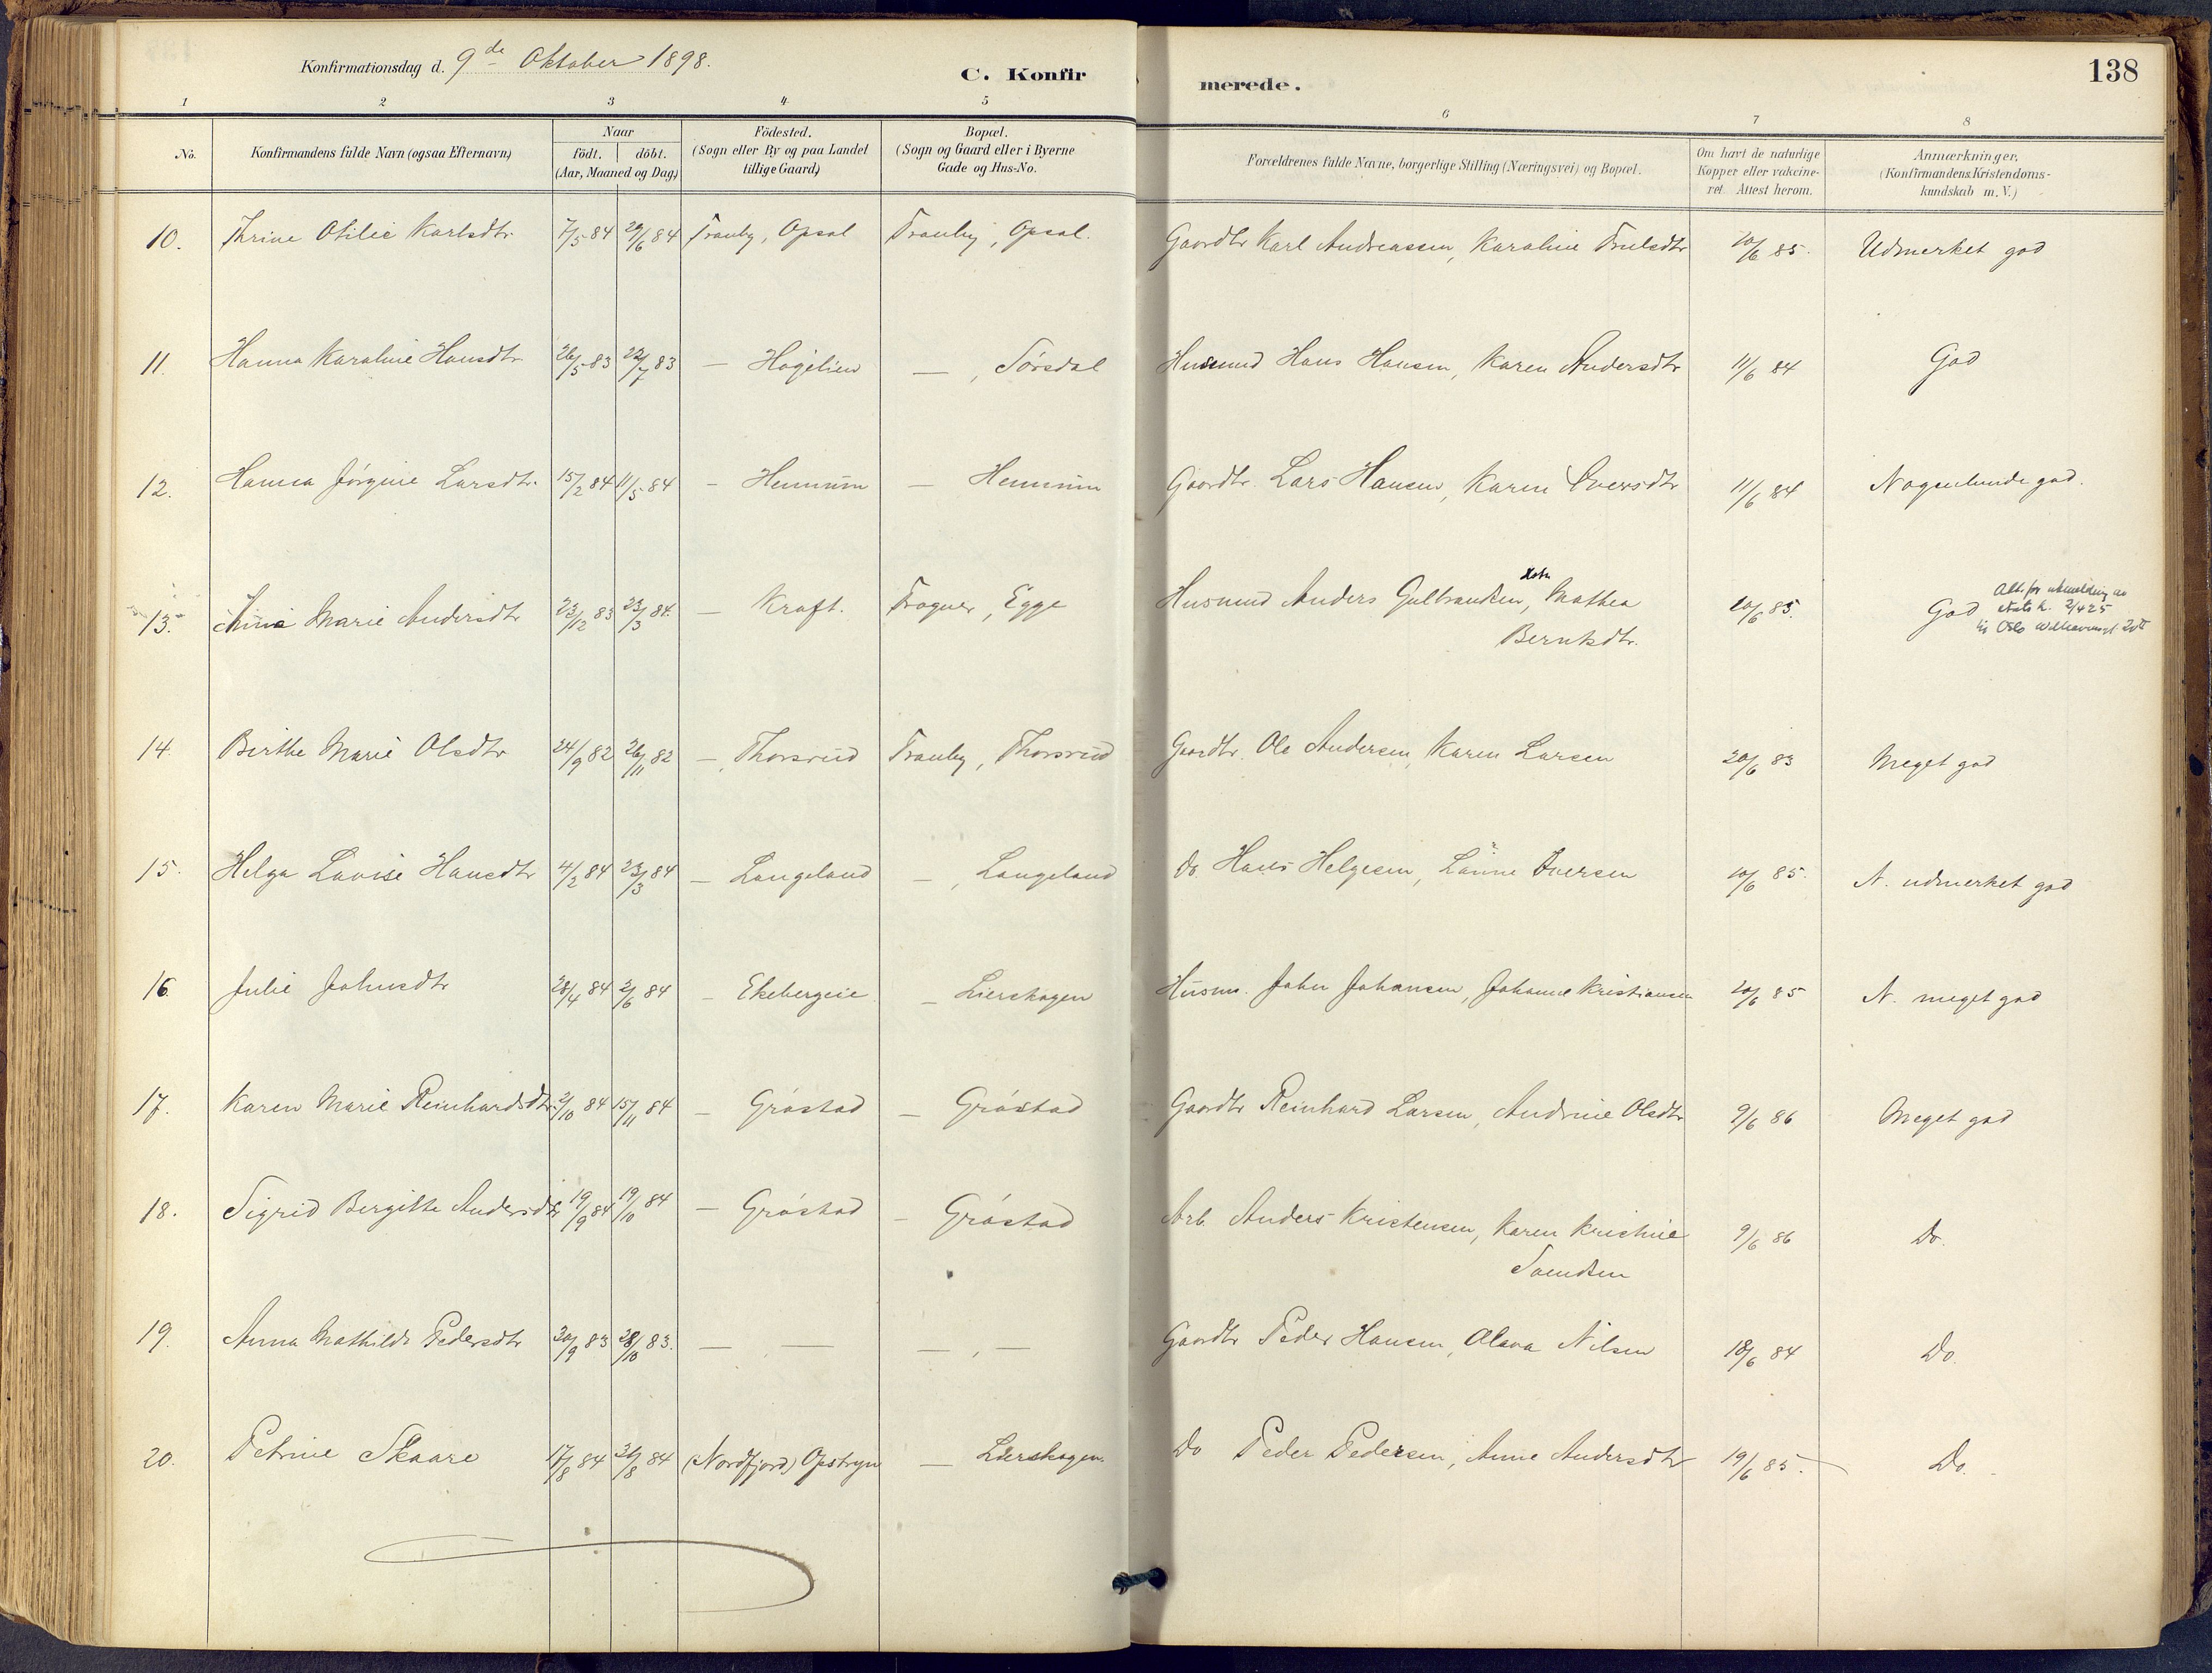 Konfirmationsdag d. 9de Oktober 1898.
C. Konfirmerede.
138
1 2 3 4 5 6 7 8
No.
Konfirmandens fulde Navn (ogsaa Efternavn)
Naar
födt. döbt.
(Aar, Maaned og Dag)
Födested.
(Sogn eller By og paa Landet
tillige Gaard)
Bopæl.
(Sogn og Gaard eller i Byerne
Gade og Hus-No.
Forældrenes fulde Navne, borgerlige Stilling (Næringsvei) og Bopæl.
Om havt de naturlige
Kopper eller vakcine-
ret. Attest herom.
Anmærkninger.
(Konfirmandens Kristendoms-
kundskab m. V.)
10. Thrine Otilie Karlsdtr. 7/5 84 29/6 84 Tranby, Opsal Tranby, Opsal. Gaardbr Karl Andreassen, Karoline Trulsdtr 20/6 85. Udmerket god
11. Hanna Karoline Hansdtr 26/5 83 22/7 83 — Högelien —, Sörsdal Husmand Hans Hansen, Karen Andersdtr 11/6 84 God
12. Hanna Jörgine Larsdtr. 15/2 84 11/5 84 — Hennum — Hennum Gaardbr. Lars Hansen, Karen Iversdtr 11/6 84 Nogenlunde god.
13. Anna Marie Andersdtr 23/12 83 23/3 84. — Kraft. Frogner, Egge Husmand Anders Gulbrandsen, Mathea
Berntsdtr. 20/6 85. God
2/4 25
Oslo
14. Birthe Marie Olsdtr 24/9 82 26/11 82 —, Thorsrud Tranby, Thorsrud Gaardbr. Ole Andersen, Karen Larsen 20/6 83 Meget god
15. Helga Lovise Hansdtr 4/2 84 23/3 84 — Langeland —, Langeland Do Hans Helgesen, Iversen 20/6 85. N. udmerket god
16. Julie Johnsdtr 28/4 84 2/6 84 — Ekebergeie — Lierskogen Husm. John Johansen, Johanne Kristiansen 20/6 85 N. meget god
17. Karen Marie Reinhardsdtr. 2/10 84 15/11 84 — Gröstad — Gröstad Gaardbr Reinhard Larsen, Andrine Olsdtr 9/6 86 Meget god
18. Sigrid Bergitte Andersdtr 19/9 84 19/10 84 — Gröstad — Gröstad Arb. Anders Kristensen, Karen Kristine
Svendsen 9/6 86 Do.
19. Anna Mathilde Pedersdtr 30/9 83 28/10 83. — — —, — Gaardbr Peder Hansen, Olava Nilsen 18/6 84 Do.
20. Petrine Skaare 17/8 84 31/8 84 (Nordfjord) Opstryn — Lierskogen. Do Peder Pedersen, Anne Andersdtr 19/6 85. Do.